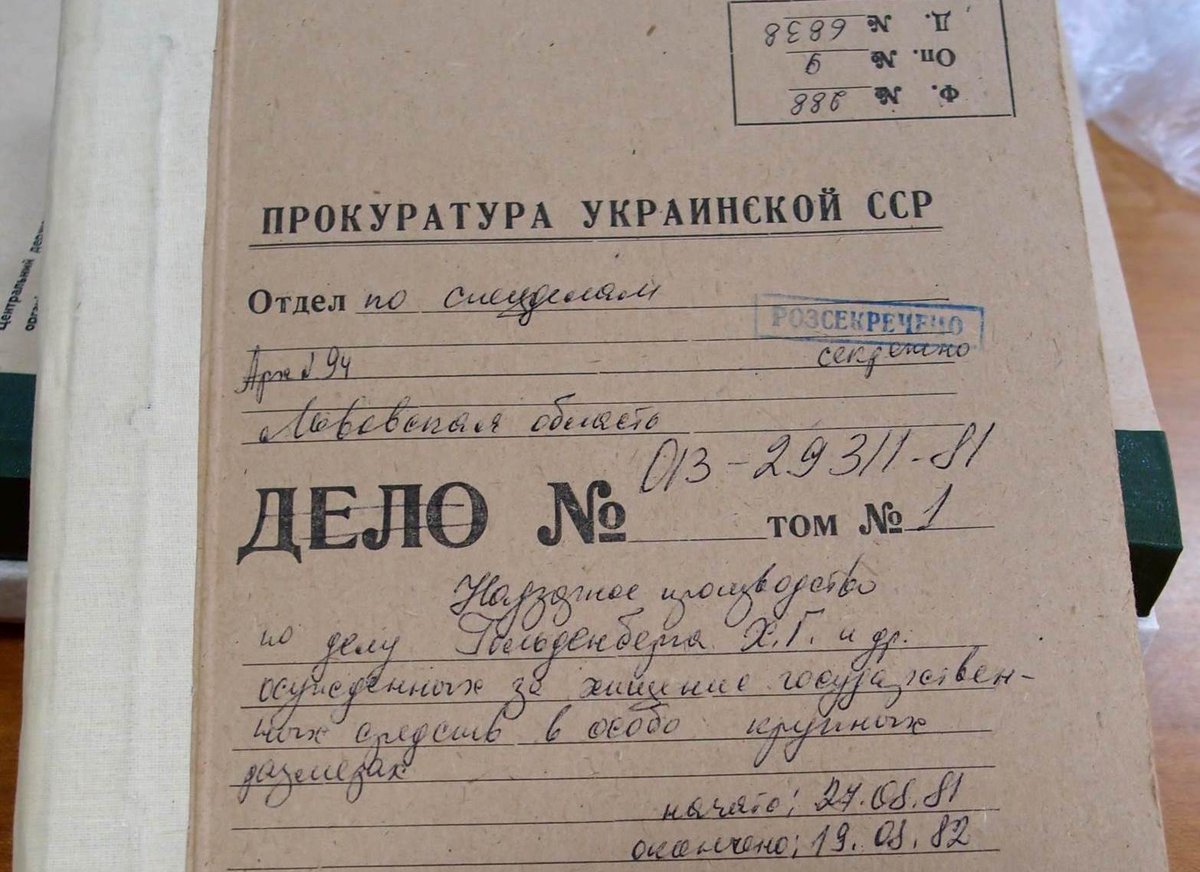 Ф. № 288
Оп. № 9
Д. № 6838
ПРОКУРАТУРА УКРАИНСКОЙ ССР
Отдел по спецделам
РОЗСЕКРЕЧЕНО
Арх № 94 секретно
Львовская область
013-29311-81
ДЕЛО № том № 1
Надзорное производство
по делу Гольденберга Х.Г. и др.
осужденных за хищение государствен-
ных средств в особо крупных
размерах
начато: 27.08.81
окончено: 19.08.82
Центральний держ